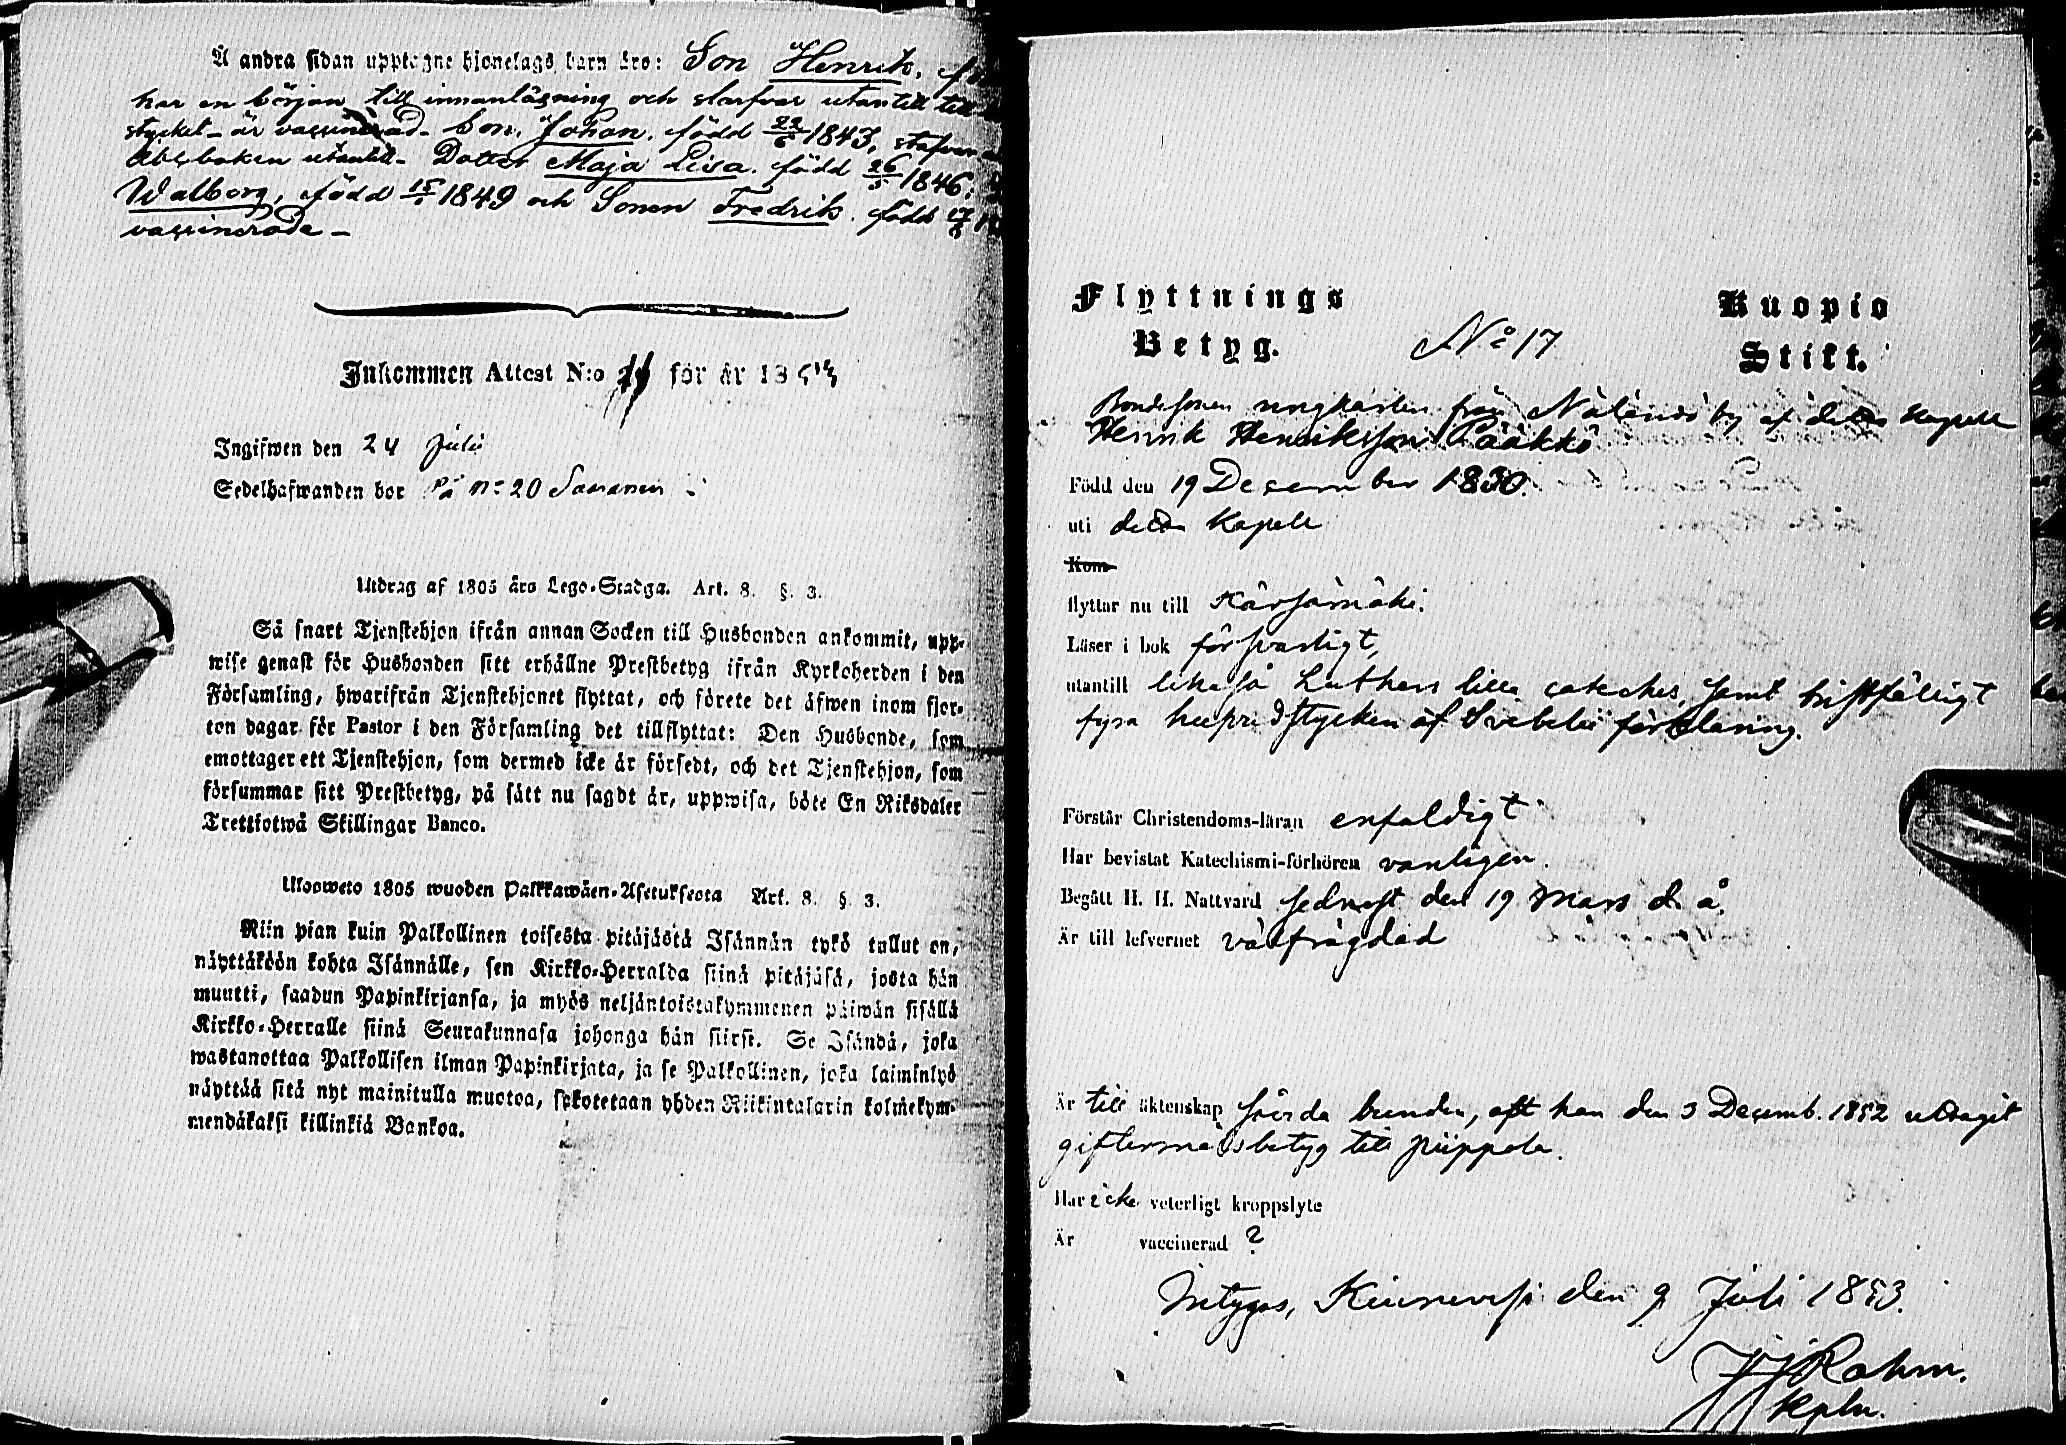 Å andra sidan upptagne hjonelags barn äro: Son Henrik,
har en början till innanläsning och stafvar utantill
stycket - är vaccinerad. Son, Johan, född 22/6 1843, stafvar
Abcboken utantill - Dotter Maja Lisa. född 26/5 1846.
Walborg, född 15/1 1849 och Sonen Fredrik. född
vaccinerade -
Inkommen Attest N:o för år 18
Ingifwen den 24 Juli
Sedelhafwanden bor på n:o 20 Saviranen
Utdrag af 1805 års Lego-Stadga. Art. 8. §. 3.
Så snart Tjenstehjon ifrån annan Socken till Husbonden ankommit, upp-
wise genast för Husbonden sitt erhållne Prestbetyg ifrån Kyrkoherden i den
Församling, hwarifrån Tjenstehjonet flyttat, och förete det äfwen inom fjor-
ton dagar för Pastor i den Församling det tillflyttat: Den Husbonde, som
emottager ett Tjenstehjon, som dermed icke är försedt, och det Tjenstehjon, som
försummar sitt Prestbetyg, på sätt nu sagdt är, uppwisa, böte En Riksdaler
Trettiotwå Skillingar Banco.
Uloosweto 1805 wuoden Palkkawäen-Asetuksesta Art. 8. §. 3.
Niin pian kuin Palkollinen toisesta pitäjästä Isännän tykö tullut on,
näyttäköön kohta Isännälle, sen Kirkko-Herralda siinä pitäjäsä, josta hän
muutti, saadun Papinkirjansa, ja myös neljäntoistakymmenen päiwän sisällä
Kirkko-Herralle siinä Seurakunnasa johonga hän siirsi. Se Isändä, joka
wastanottaa Palkollisen ilman Papinkirjata, ja se Palkollinen, joka laiminlyö
näyttää sitä nyt mainitulla muotoa, sakotetaan yhden Riikintalarin kolmekym-
mendäkaksi killinkiä Bankoa.
Flyttnings Kuopio
Betyg. N:o 17 Stift.
Bondesonen ungkarlen från by af detta Kapell
Henrik Henriksson Pääkkö
Född den 19 December 1830.
uti detta Kapell
Kom
flyttar nu till Kärsämäki.
Läser i bok försvarligt,
utantill likaså Luthers lilla cateches, samt bristfälligt
fyra hufvudstycken af Svebelii förklaring.
Förstår Christendoms-läran enfaldigt
Har bevistat Katechismi-förhören vanligen.
Begått H. H. Nattvard sednast den 19 Mars d. å.
Är till lefvernet välfrägdad
Är till äktenskap bunden, han den 3 Decemb. 1852 uttagit
giftermålsbetyg till Piippola.
Har icke veterligt kroppslyte
Är vaccinerad ?
Intygas, Kiuruvesi den 9 Juli 1853.
Rahm.
Kpln.